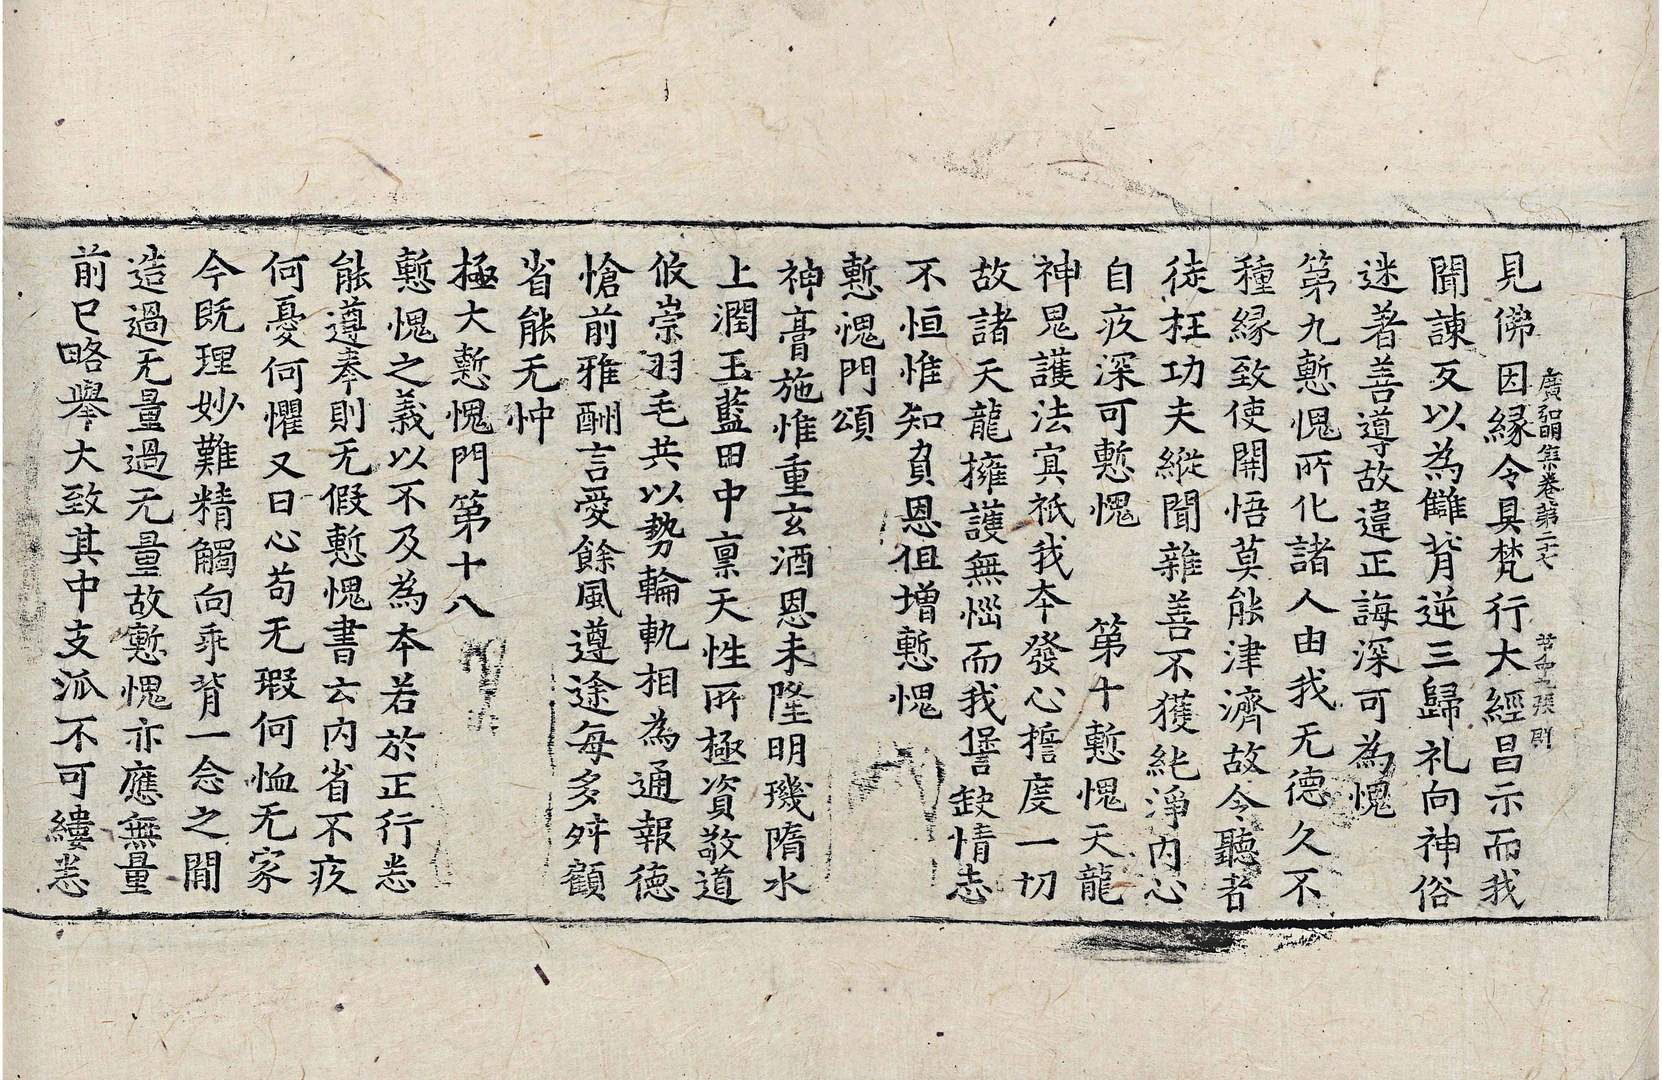 見佛因緣令具梵行大經昌示而我
廣弘明集卷第二十七
聞諫反以為讎背逆三歸礼向神俗
迷著善導故違正誨深可為愧
第九慙愧所化諸人由我无德久不
種緣致使開悟莫能津濟故令聽者
徒枉功夫縱聞雜善不獲純淨內心
自疚深可慙愧 第十慙愧天龍
神鬼護法冥祇我本發心誓度一切
故諸天龍擁護無惱而我堡缺情志
不恒惟知負恩徂增慙愧
慙愧門頌
神膏施惟重玄酒恩未隆明璣隋水
上潤玉藍田中稟天性所極資敬道
攸崇羽毛共以勢輪軌相為通報德
愴前雅酬言愛餘風遵途每多舛顧
省能无忡
極大慙愧門第十八
慙愧之義以不及為本若於正行悉
能遵奉則无假慙愧書云內省不疚
何憂何懼又曰心苟无瑕何恤无家
今既理妙難精觸向乖背一念之閒
造過无量過无量故慙愧亦應無量
前已略舉大致其中支派不可縷悉